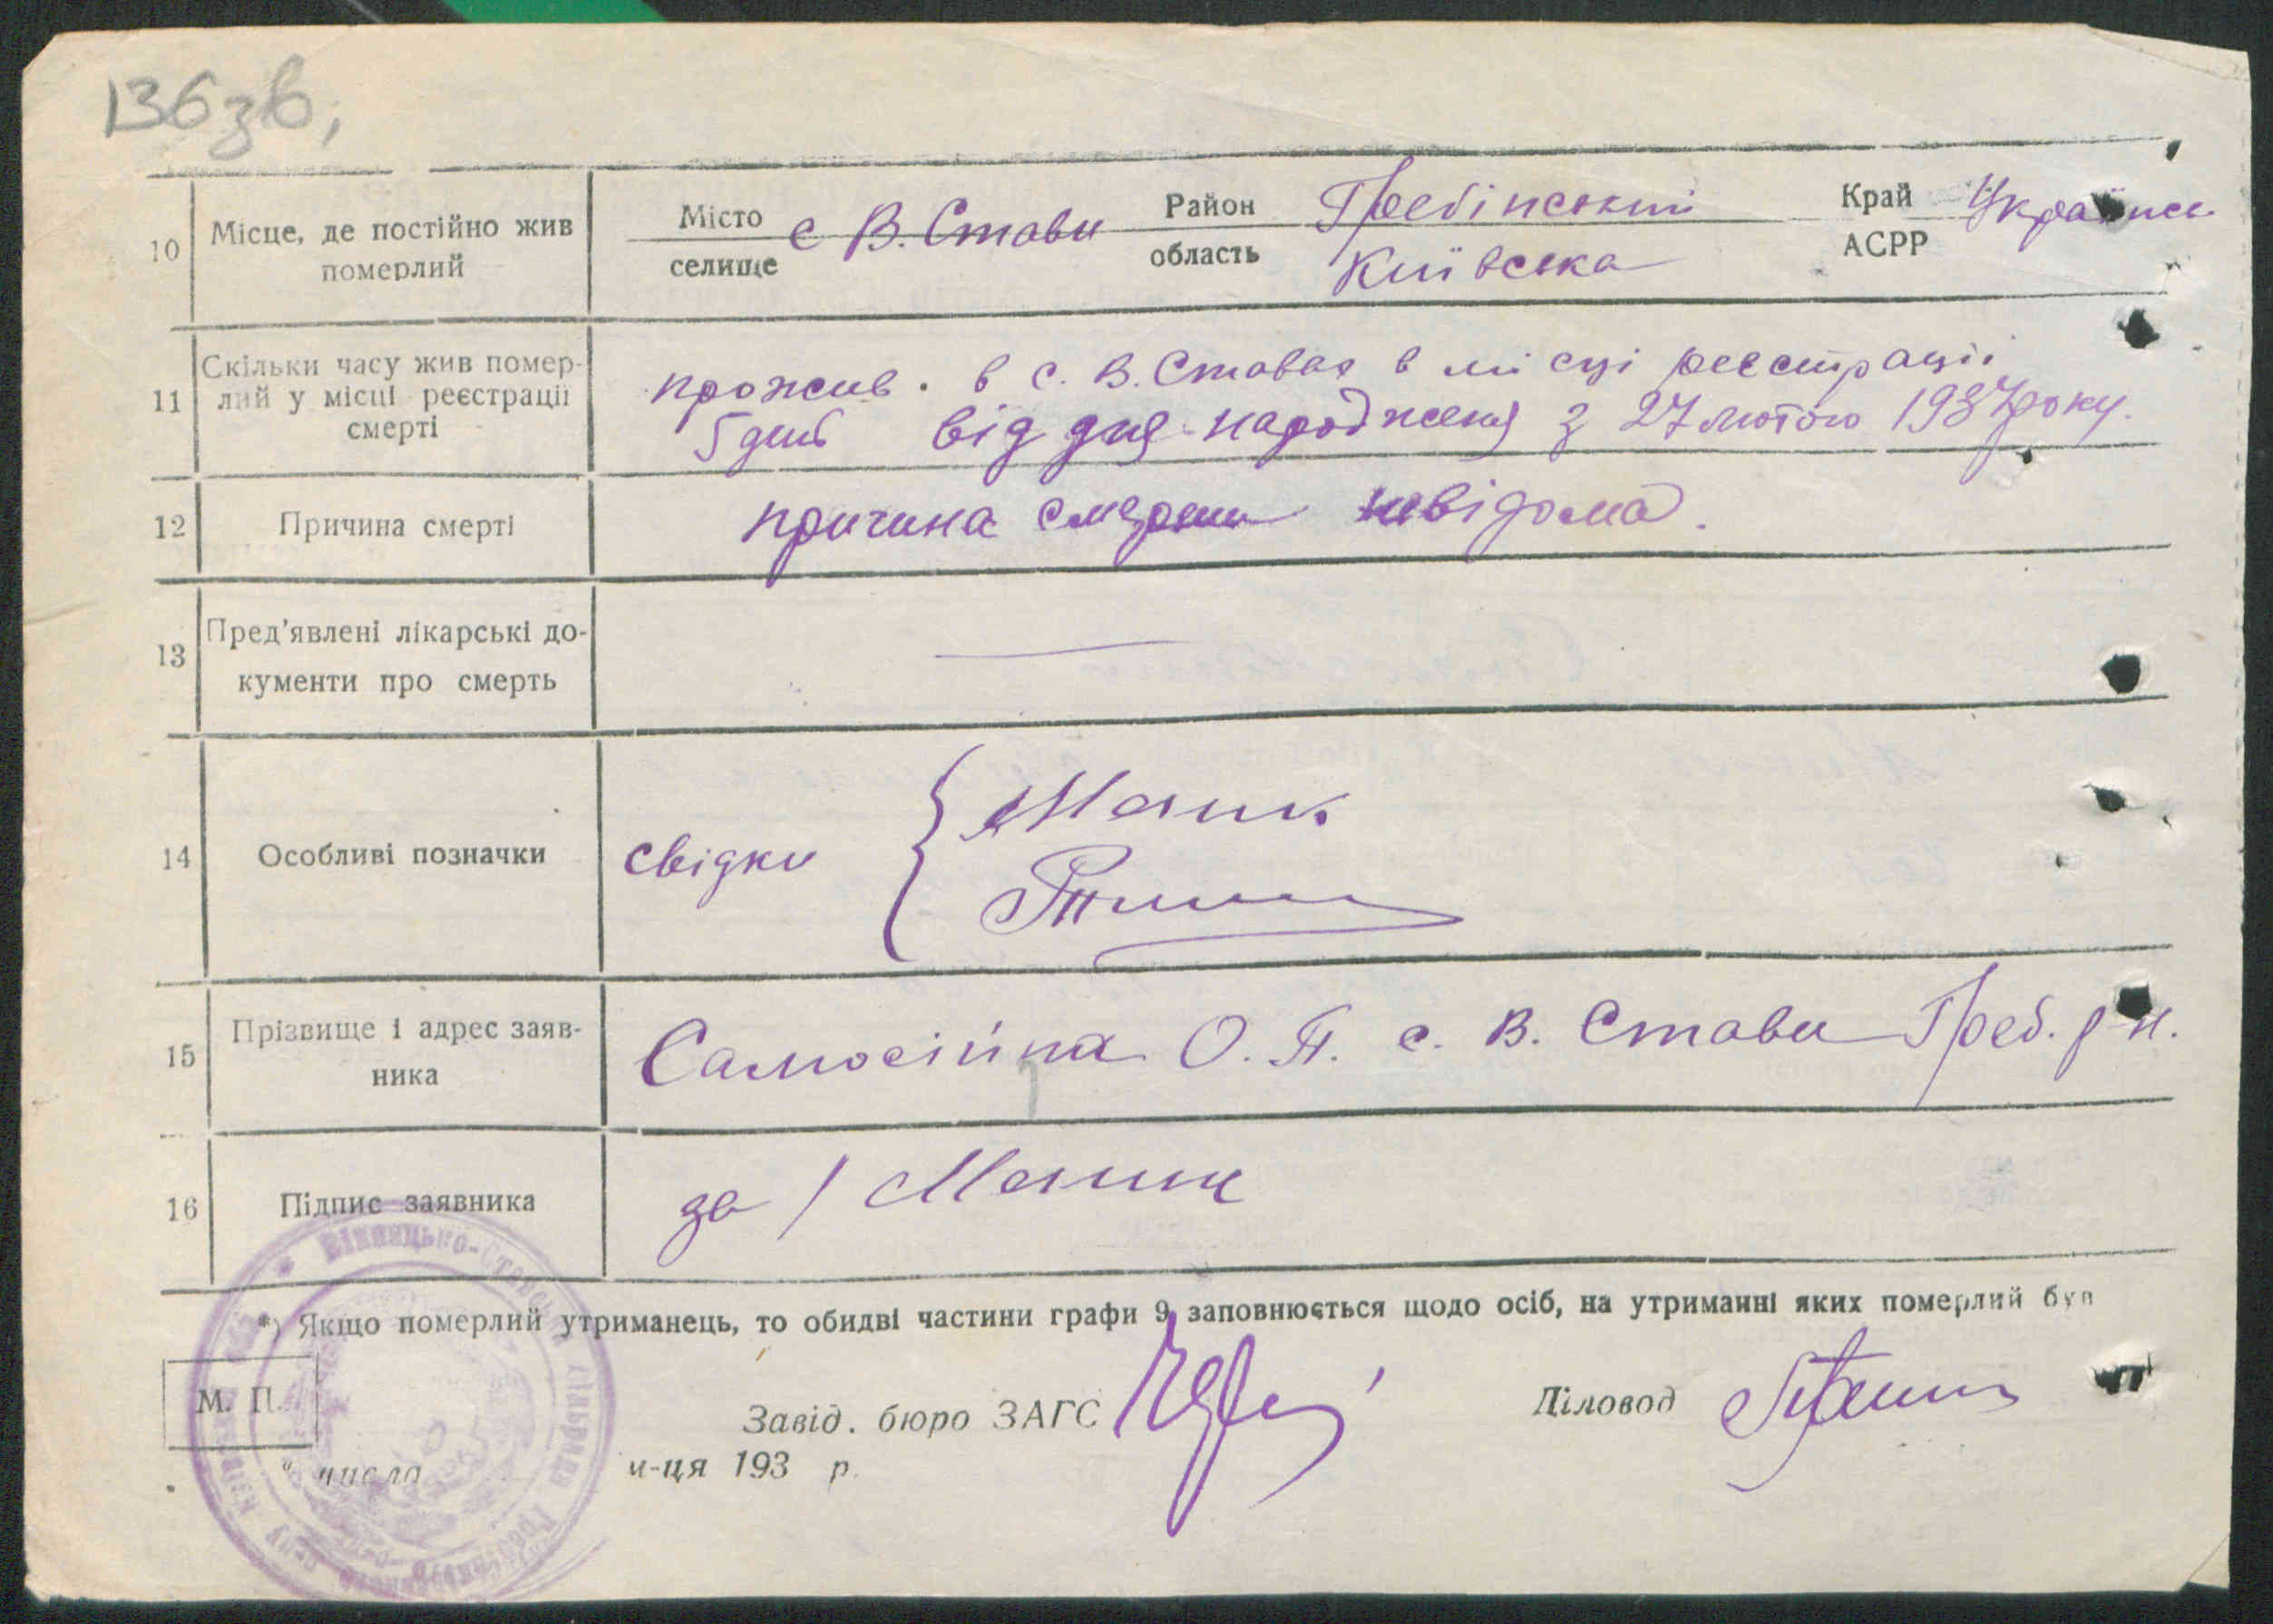 136 зв,
10 Місце, де постійно жив померлий
Місто селище с В. Стави Район Гребінський область Київська Край АСРР
11 Скільки часу жив помер-
лий у місці реєстрації
смерті
прожив. в с. В. Ставах в місці реєстрації
5 днів від дня народженя з 27 лютого 1937 року.
12 Причина смерті
причина смерти невідома.
13 Пред'явлені лікарські до-
кументи про смерть
14 Особливі позначки
свідки
15 Прізвище і адрес заяв-
ника
О. П. с. В. Стави Греб. р н.
16 Підпис заявника
за /
*) Якщо померлий утриманець, то обидві частини графи 9 заповнюється щодо осіб, на утриманні яких померлий був
М. П.
Завід. бюро ЗАГС
Діловод
" числа м-ця 193 р.